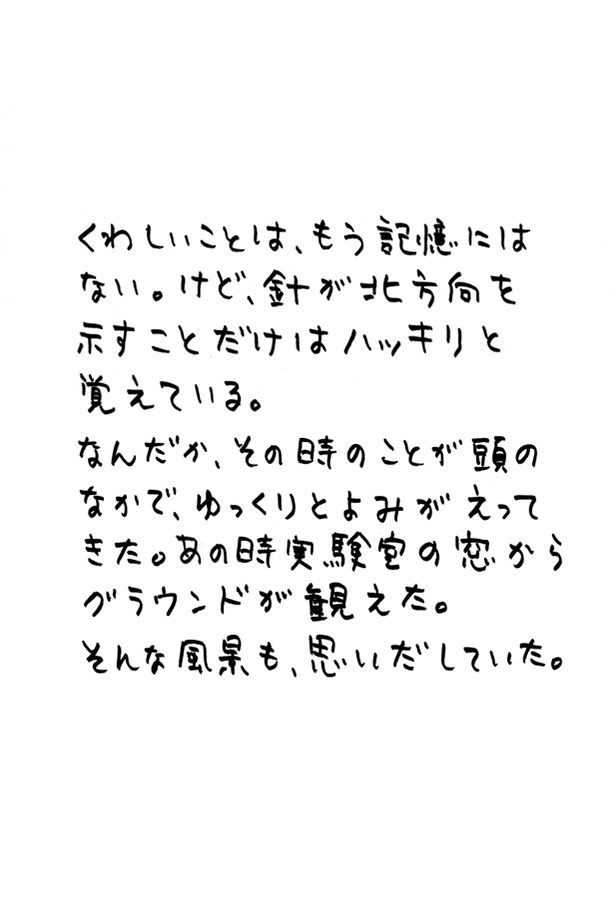 くわしいことは、もう記憶には
ない。けど、針が北方向を
示すことだけはハッキリと
覚えている。
なんだか、その時のことが頭の
なかで、ゆっくりとよみがえって
きた。あの時実験室の窓から
グラウンドが観えた。
そんな風景も、思いだしていた。